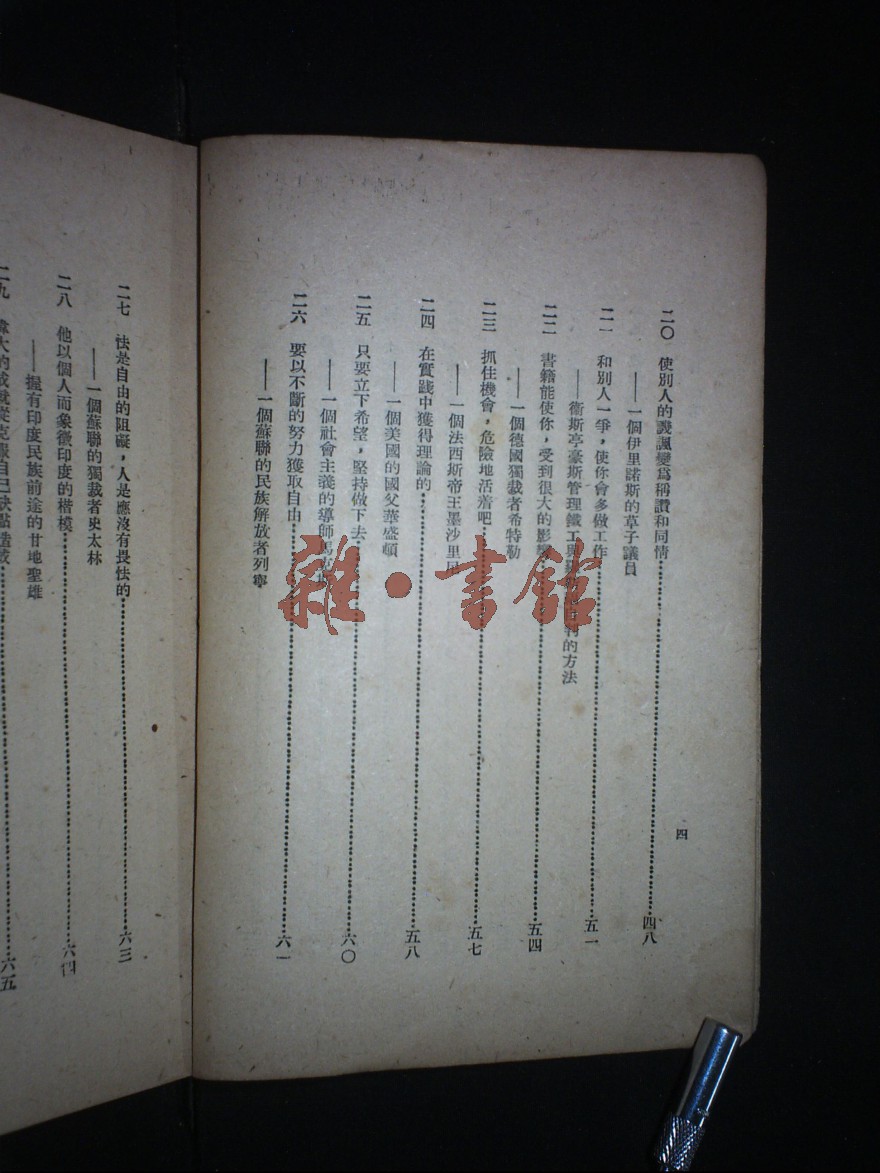 四
二〇　使別人的譏諷變爲稱讚和同情……四八
——一個伊里諾斯的草子議員
二一　和別人一爭，使你會多做工作……五一
——衞斯亭豪斯管理鐵工與
的方法
二二　書籍能使你，受到很大的影……五四
——一個德國獨裁者希特勒
二三　抓住機會，危險地活着吧……五七
——一個法西斯帝王墨沙里尼
二四　在實踐中獲得理論的……五八
——一個美國的國父華盛頓
二五　只要立下希望，堅持做下去……六〇
——一個社會主義的導師馬克
二六　要以不斷的努力獲取自由……六一
——一個蘇聯的民族解放者列寧
二七　怯是自由的阻礙，人是應沒有畏怯的……六三
——一個蘇聯的獨裁者史太林
二八　他以個人而象徵印度的楷模……六四
——握有印度民族前途的甘地聖雄
二九　偉大的成就從克服自己缺點造成……六五
雜·書館